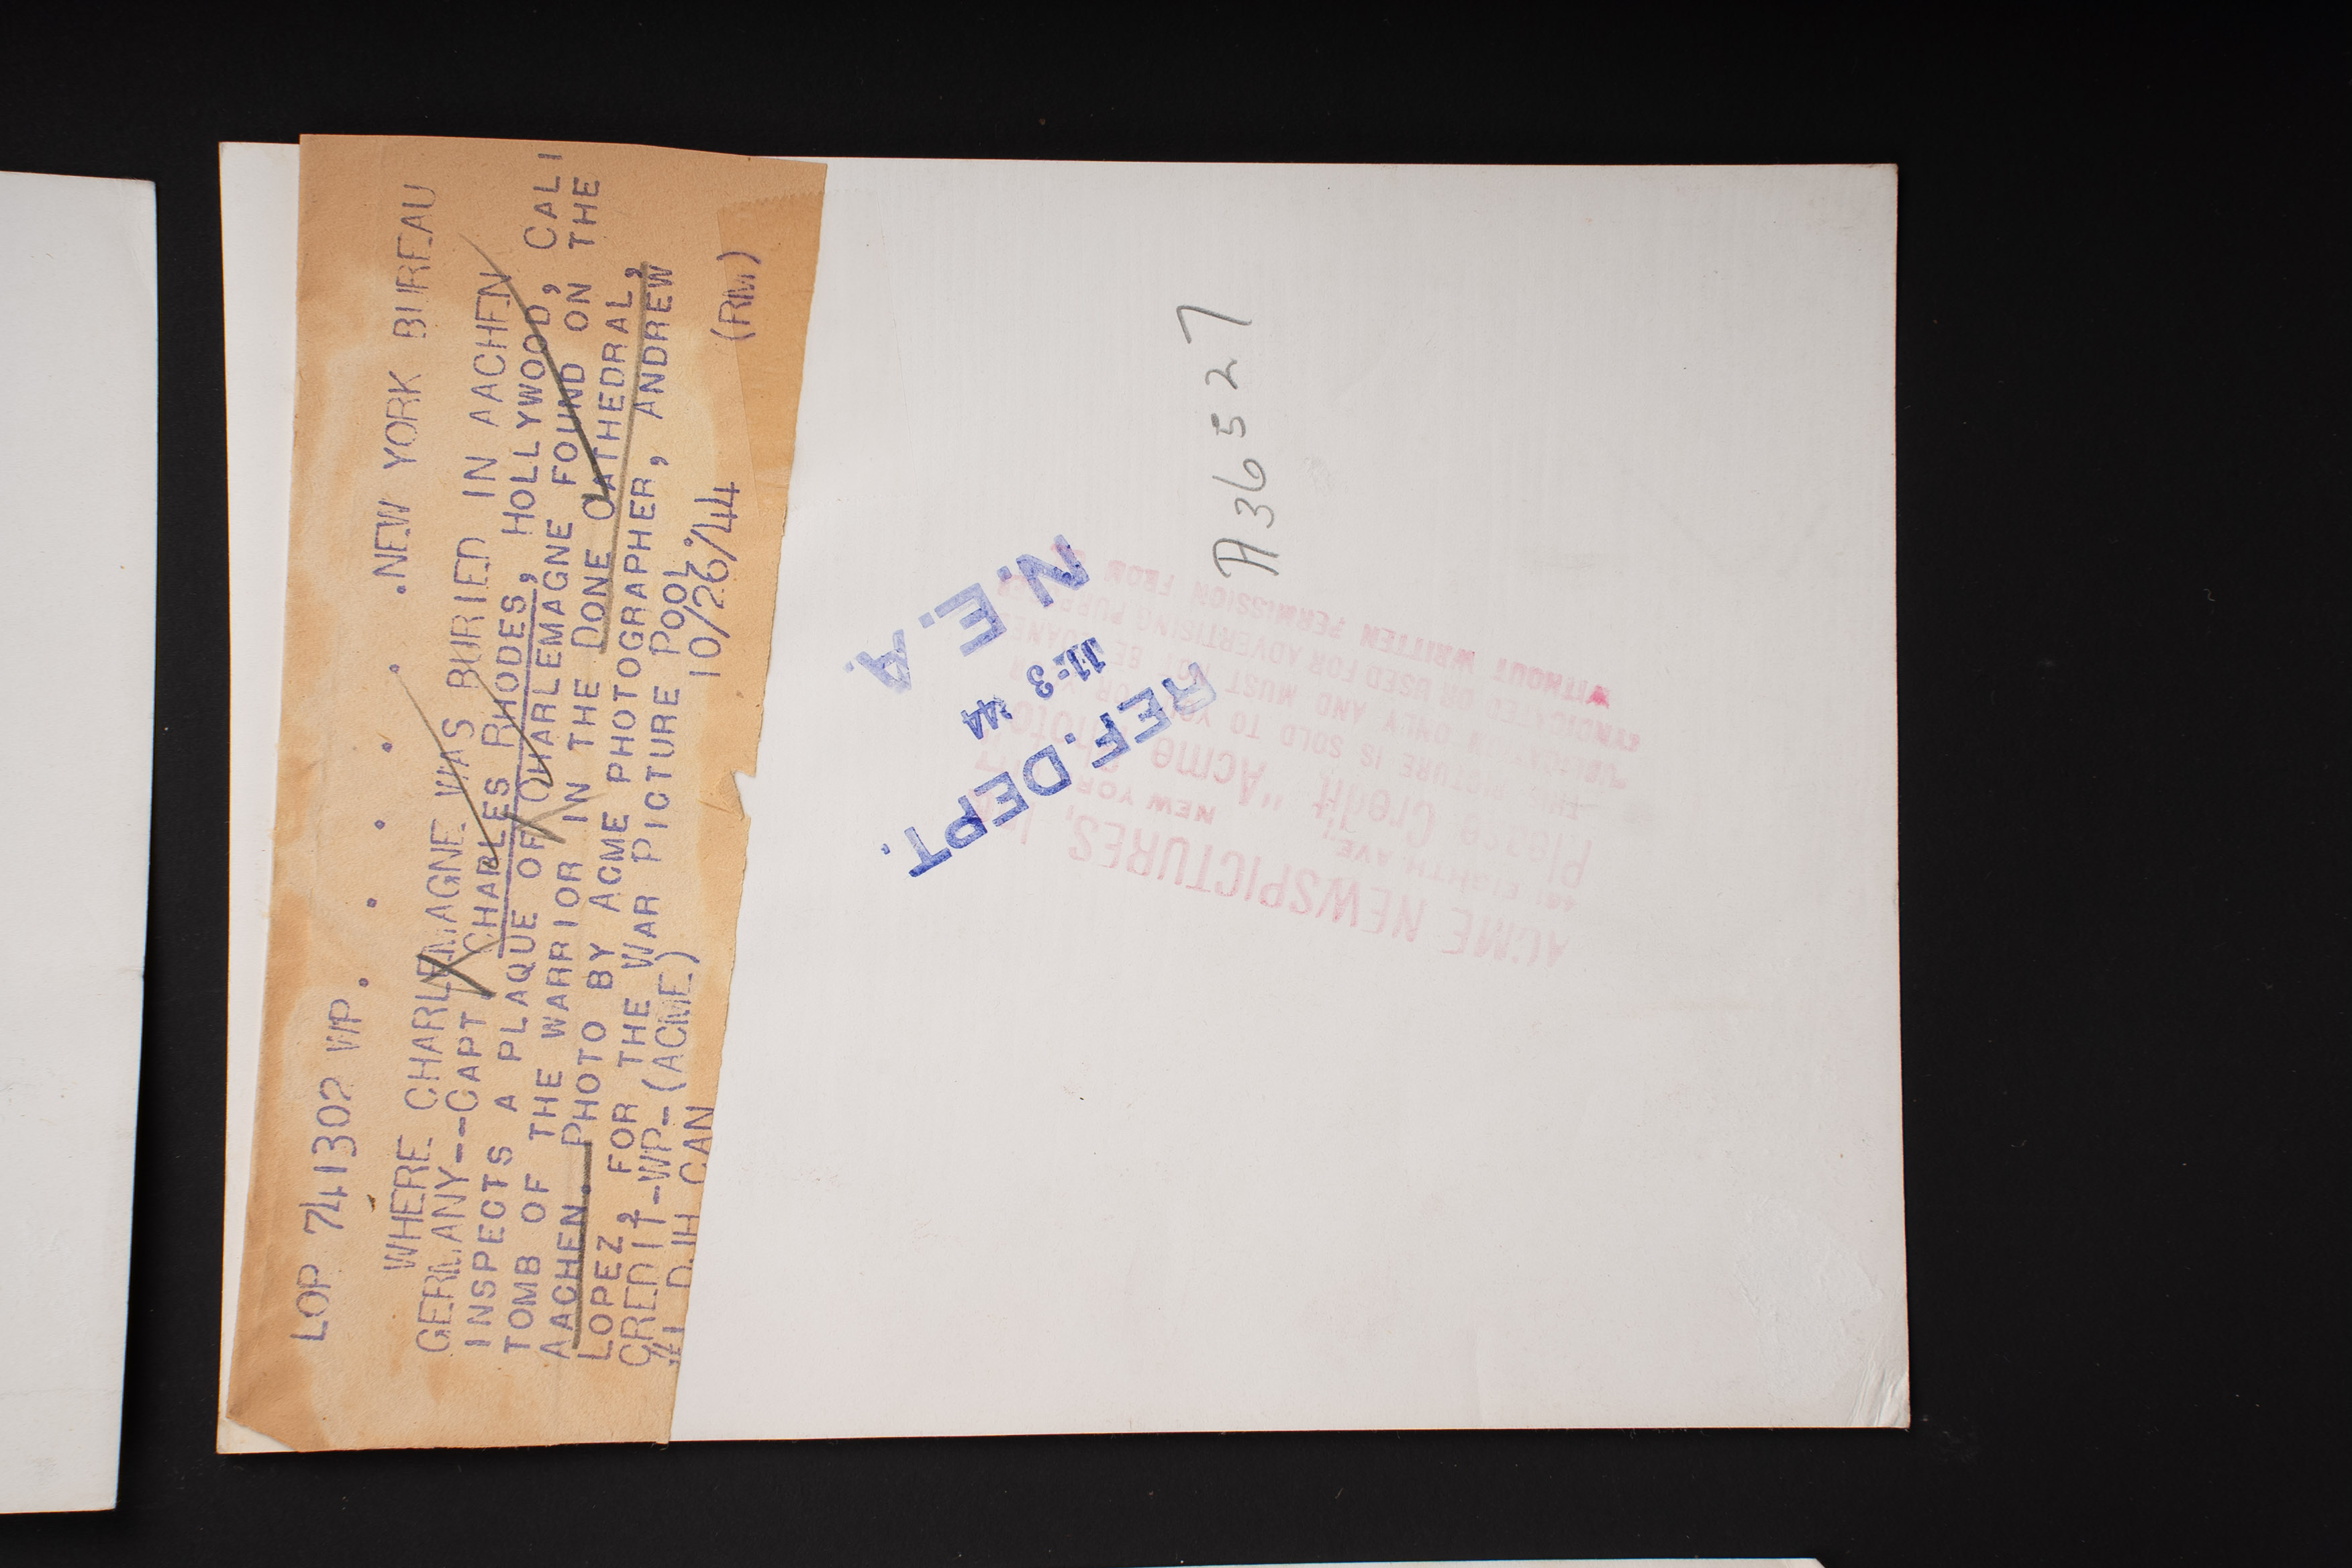 LOP 741302 WP. . . . . . .NEW YORK BUREAU
WHERE CHARLEMAGNE WAS BURIED IN AACHEN
GERMANY--CAPT CHARLES RHODES, HOLLYWOOD, CALI
INSPECTS A PLAQUE OF CHARLEMAGNE FOUND ON THE
TOMB OF THE WARRIOR IN THE DONE CATHEDRAL,
AACHEN. PHOTO BY ACME PHOTOGRAPHER, ANDREW
LOPEZ, FOR THE WAR PICTURE POOL.
CREDIT-WP-(ACME) 10/26/44 (RM)
CAN
A36527
N.E.A.
11-3 '44
REF. DEPT.
ACME NEWSPICTURES,
EIGHTH AVE., NEW YORK
Please Credit "Acme Photo"
THIS PICTURE IS SOLD TO YOU FOR
ONLY AND MUST NOT BE
SYNDICATED OR USED FOR ADVERTISING
WITHOUT WRITTEN PERMISSION FROM